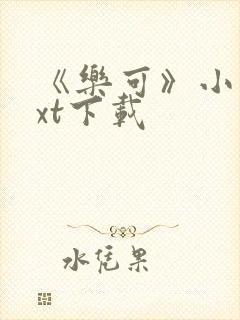 《樂可》小
xt下載
水凭果